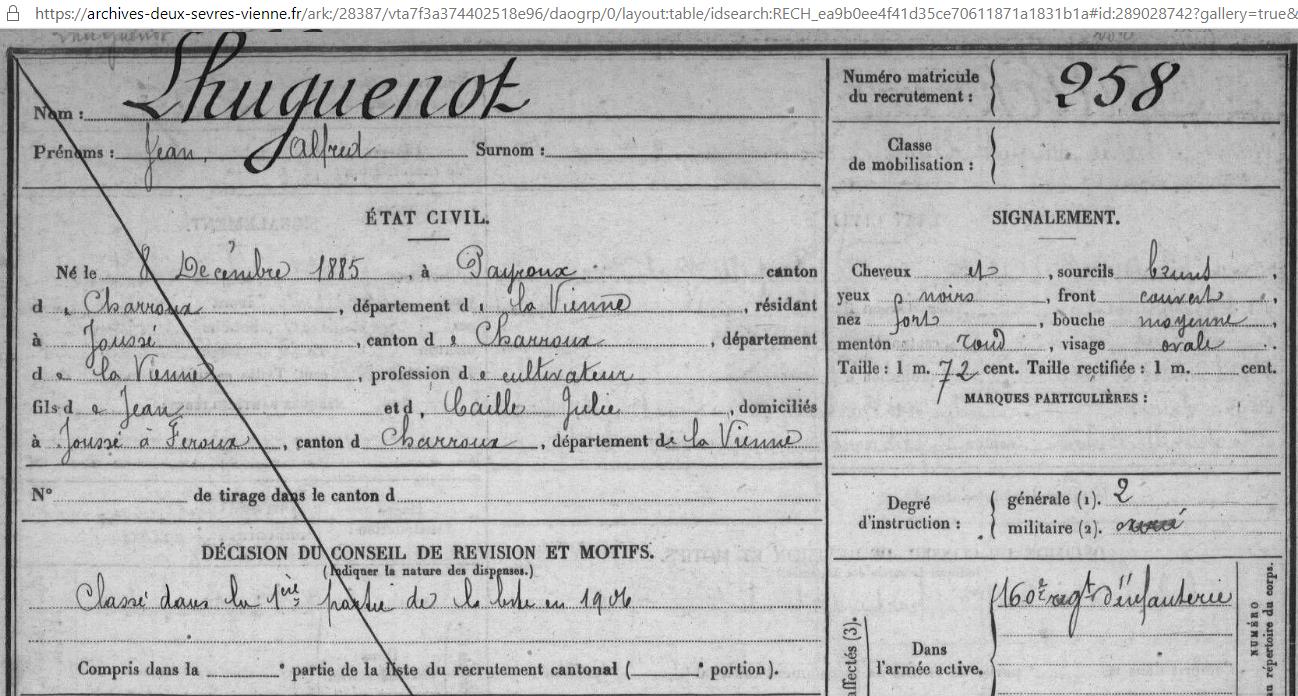 https://archives-deux-sevres-vienne.fr/ark:/28387/vta7f3a374402518e96/daogrp/0/layout:table/idsearch:RECH_ea9b0ee4f41d35ce70611871a1831b1a#id:289028742?gallery=true&
Nom : Lhuguenot
Prénoms : Jean, Alfred Surnom :
Numéro matricule du recrutement : 258
Classe de mobilisation :
ÉTAT CIVIL.
Né le 8 Décembre 1885, à Payroux canton
de Charroux, département de la Vienne, résidant
à Joussé, canton de Charroux, département
de la Vienne, profession de cultivateur
fils de Jean et d, Caille Julie, domiciliés
à Joussé à Feroux, canton d Charroux, département de la Vienne
N° de tirage dans le canton d
DÉCISION DU CONSEIL DE REVISION ET MOTIFS.
(Indiquer la nature des dispenses.)
Classé dans la 1ère partie de la liste en 1906
Compris dans la ° partie de la liste du recrutement cantonal ( ° portion).
SIGNALEMENT.
Cheveux et, sourcils bruns,
yeux noirs, front couvert,
nez fort, bouche moyenne,
menton rond, visage ovale.
Taille : 1 m. 72 cent. Taille rectifiée : 1 m. cent.
MARQUES PARTICULIÈRES :
Degré d'instruction :
générale (1). 2
militaire (2).
affectés (3).
Dans l'armée active.
160e regt d'infanterie
NUMÉRO
au répertoire du corps.